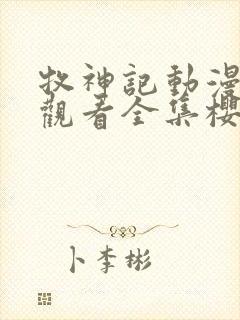 牧神記動漫
觀看全集櫻
卜李彬